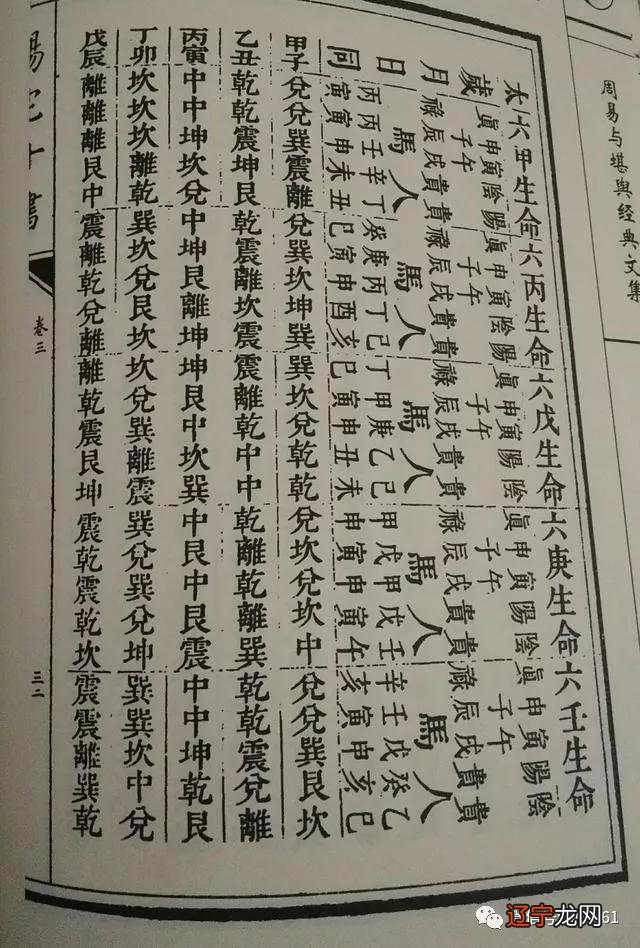 周易与堪舆经典文集
太六甲生命六丙生命六戊生命六庚生命六壬生命
歲眞申寅陰陽眞申寅陰陽眞申寅陽陰眞申寅陽陰眞申寅陽陰
子午子午子午子午子午
月祿辰戌貴貴祿辰戌貴貴祿辰戌貴貴祿辰戌貴貴祿辰戌貴貴
馬人馬人馬人馬人馬人
日丙丙壬辛丁癸庚丙丁己丁甲庚乙己甲戊甲戊壬辛壬戊癸乙
同寅寅申未丑巳寅申酉亥巳寅申丑未申寅申寅午亥寅申亥巳
甲子兌兌巽震離兌巽坎坤巽巽坎兌乾乾兌坎兌坎中兌兌巽艮坎
乙丑乾乾震坤艮乾震離坎震震離乾中中乾離乾離巽乾乾震兌離
丙寅中中坤坎兌中坤艮離坤坤艮中坎巽中艮中艮震中中坤乾艮
丁卯坎坎坎離乾巽坎兌艮坎坎兌巽離震巽兌巽兌坤巽巽坎中兌
戊辰離離離艮中震離乾兌離離乾震艮坤震乾震乾坎震震離巽乾
陽宅十書
卷三
三二
辽宁龙网
61